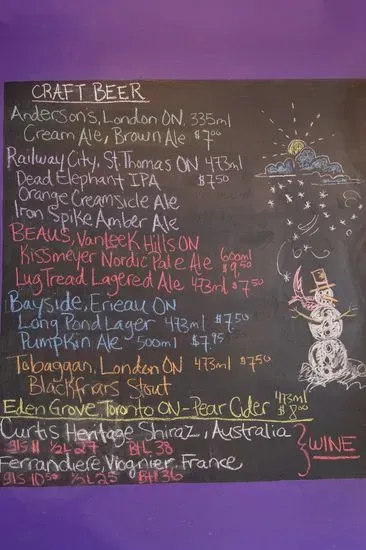 CRAFT BEER
Anderson's, London ON 335ml
Cream Ale, Brown Ale $7.00
Railway City, St Thomas ON 473ml
Dead Elephant IPA $7.50
Orange Creamsicle Ale
Iron Spike Amber Ale
BEAUS, VanLeeK Hills ON
Kissmeyer Nordic Pale Ale 600ml $9.50
LugTread Lagered Ale 473ml $7.50
Bayside, Erieau ON
Long Pond Lager 473ml $7.50
Pumpkin Ale 500ml $7.95
Tobaggan, London ON 473ml $7.50
Blackfriars Stout
Eden Grove, Toronto ON - Pear Cider 473ml $8.00
Curtis Heritage Shiraz, Australia
gls 11 1/2L 27 Btl 38
WINE
Ferrandiere, Viognier, France
gls 10.50 1/2L 25 Btl 36